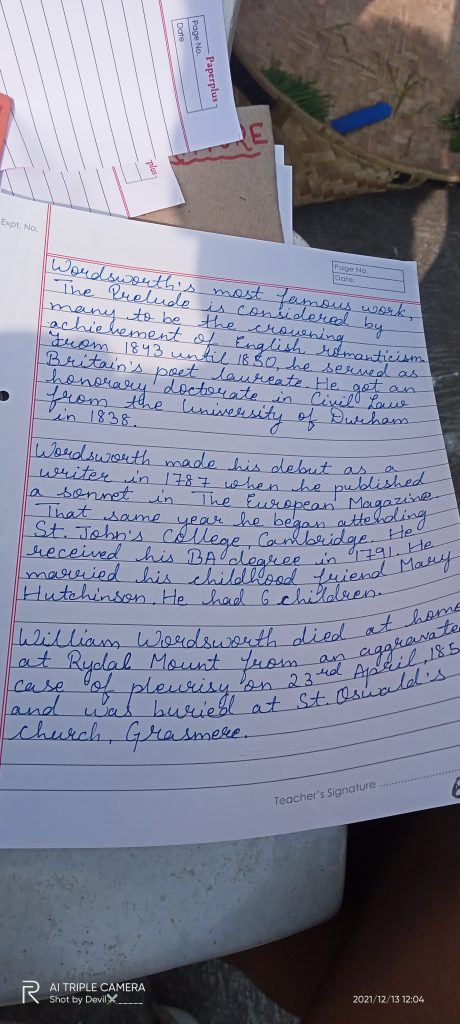 Paperplus
Page No.
Date
plus
Expt. No.
Page No.
Date.
Wordsworth's most famous work,
The Prelude is considered by
many to be the crowning
achievement of English romanticism.
From 1843 until 1850, he served as
Britain's poet laureate. He got an
honorary doctorate in Civil Law
from the University of Durham
in 1838.
Wordsworth made his debut as a
writer in 1787 when he published
a sonnet in The European Magazine.
That same year he began attending
St. John's College, Cambridge. He
received his BA degree in 1791. He
married his childhood friend Mary
Hutchinson. He had 6 children.
William Wordsworth died at home
at Rydal Mount from an aggravate
case of pleurisy on 23rd April, 185
and was buried at St. Oswald's
church, Grasmere.
Teacher's Signature
AI TRIPLE CAMERA
Shot by Devil
2021/12/13 12:04